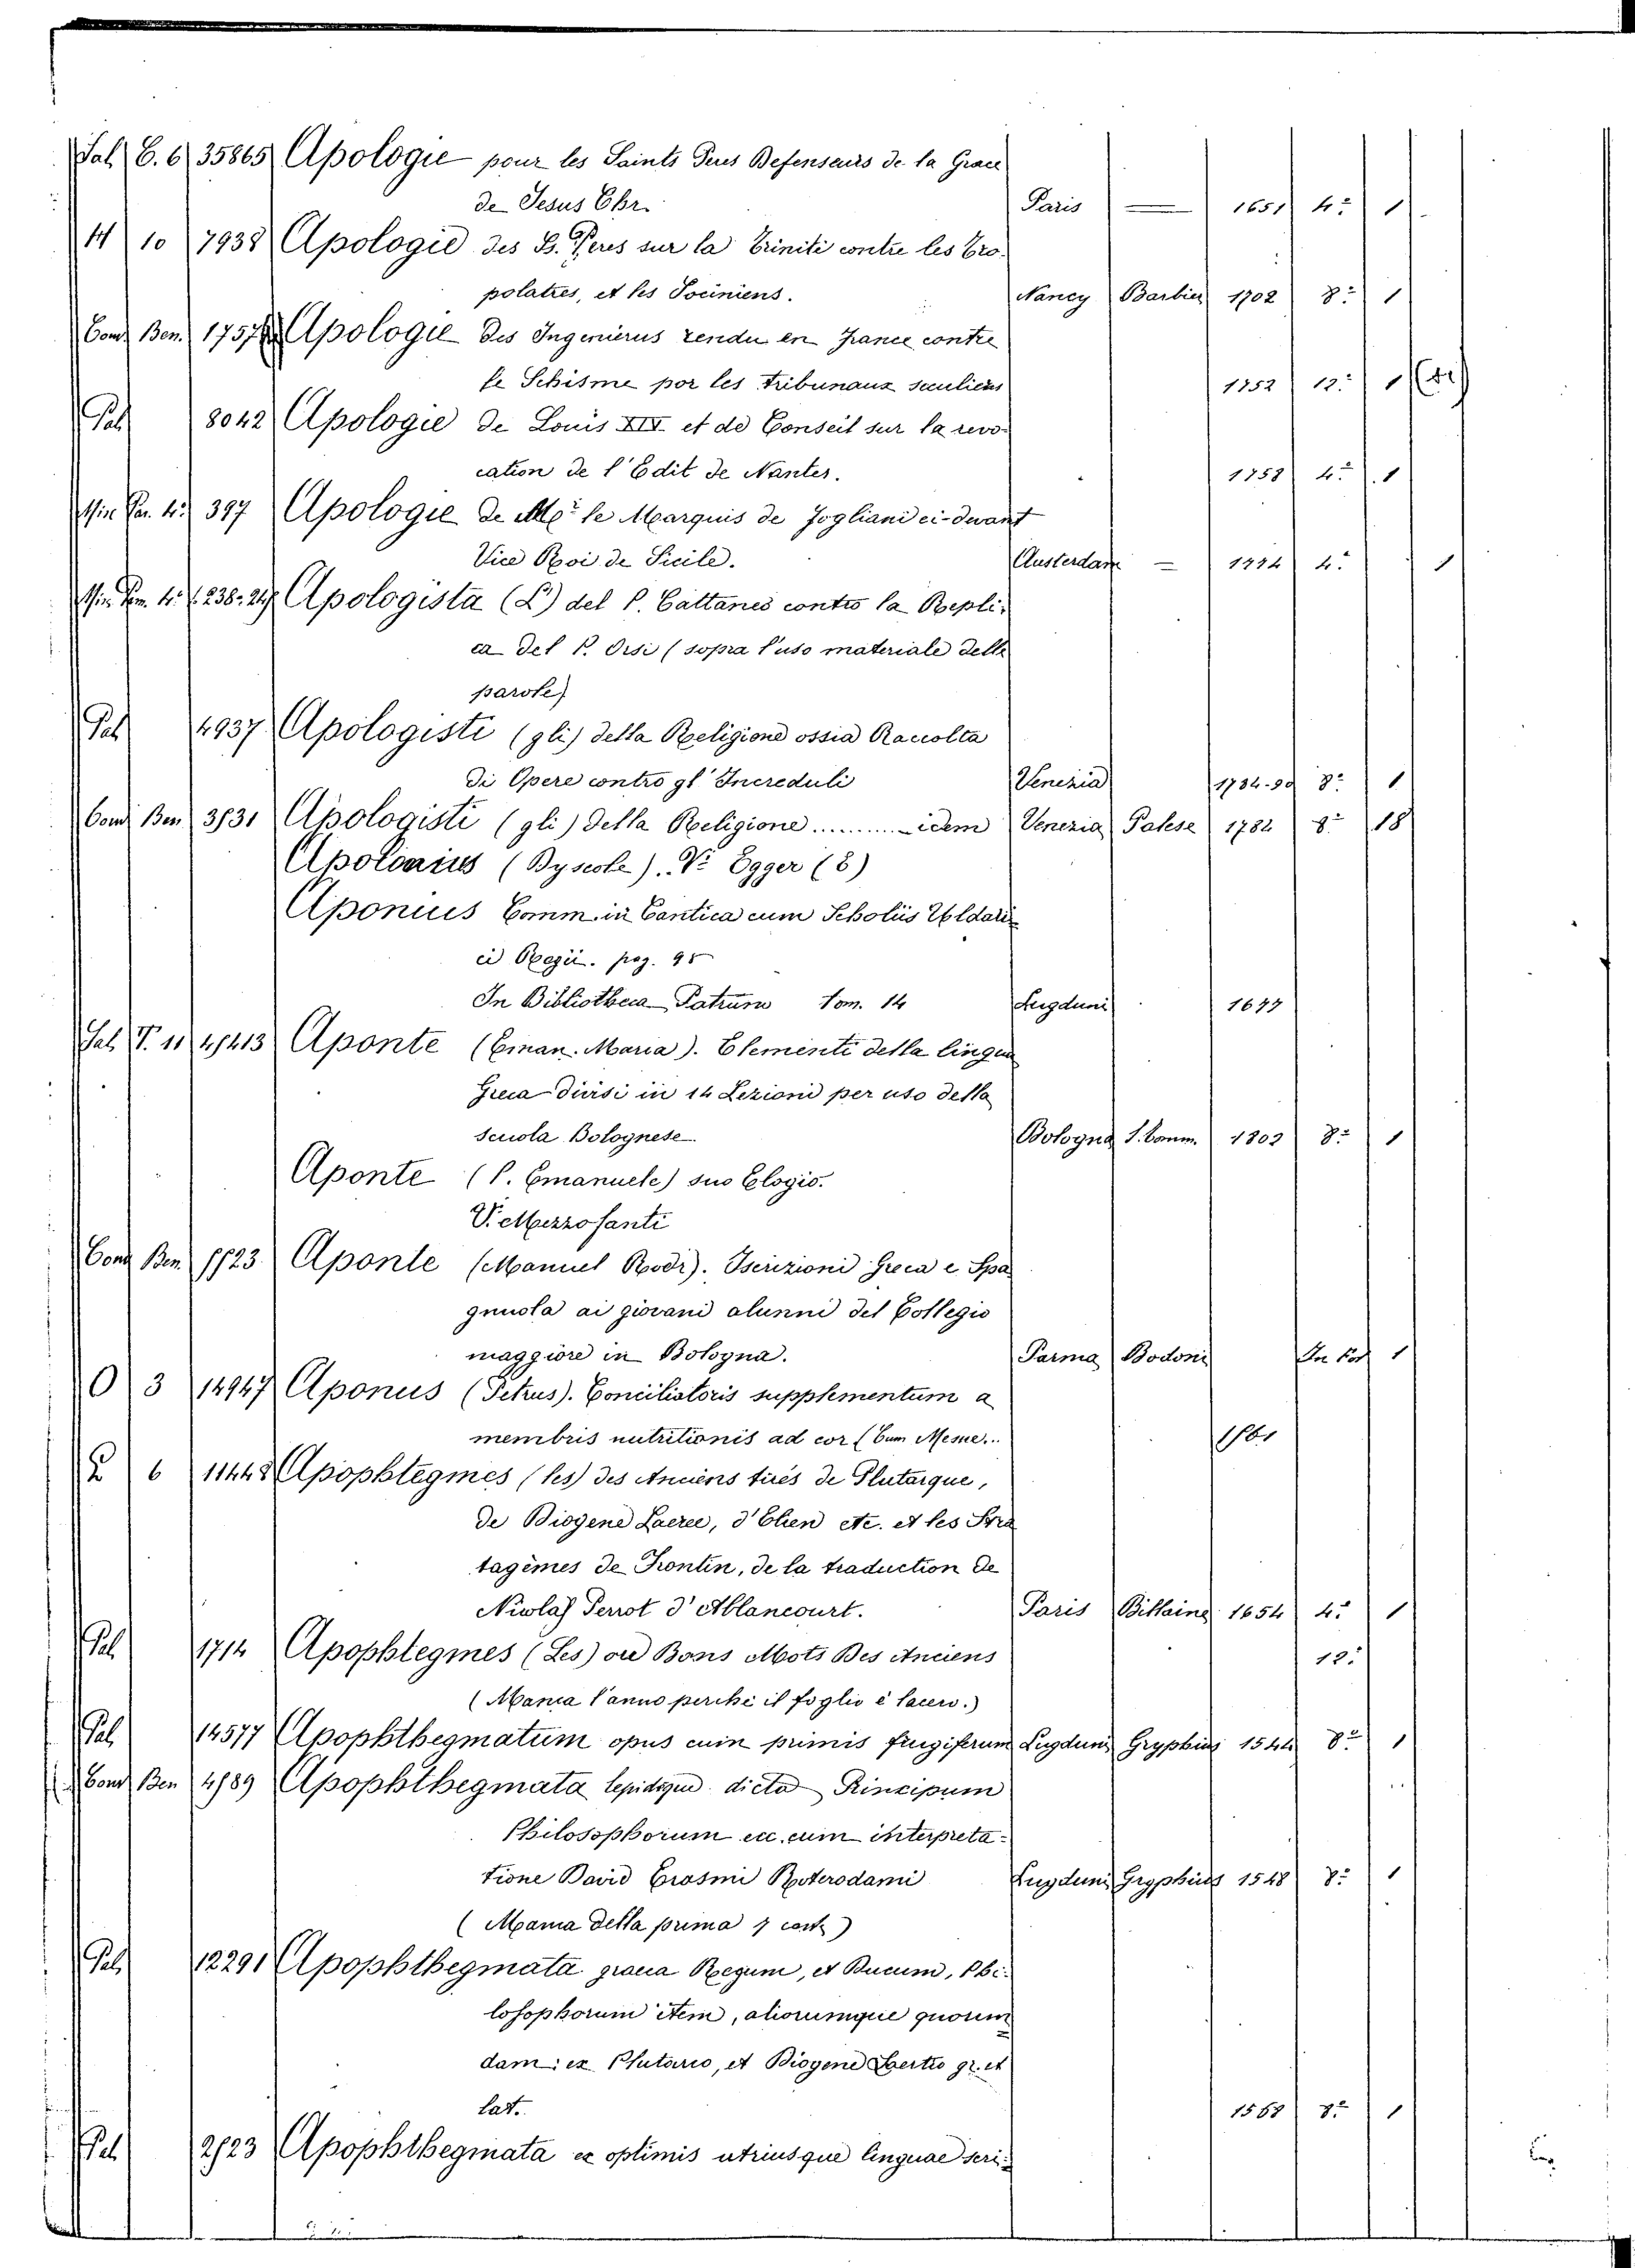 Sal C. 6 35865 Apologie pour les Saints Peres Defenseurs de la Grace
de Jesus Chr. Paris — 1651 4.° 1
10 7938 Apologie des S. Peres sur la Trinité contre les Tro-
polatres, et les Sociniens. Nancy Barbier 1702 8.° 1
Cond Ben. Apologie des Ingenierus rendu en France contre
le Schisme por les tribunaux seculiers 1752 12.° 1
Pal 8042 Apologie de Louis XIV et de Conseil sur la revo-
cation de l'Edit de Nantes. 1758 4.° 1
397 Apologie de M.r le Marquis de Fogliani ci-devant
Vice Roi de Sicile. 4.° 1
Apologista (L') del P. Cattaneo contro la Repli-
ca del P. Orsi (sopra l'uso materiale delle
parole)
Pal 4937 Apologisti (gli) della Religione ossia Raccolta
di Opere contro gl'Increduli Venezia 1784-90 8.° 1
Cond Ben 3731 Apologisti (gli) della Religione .......... idem Venezia Palese 1784 8.° 18
Apolonius (Dyscole). V. Egger (E)
Aponius Comm. in Cantica cum Scholiis Uldari-
ci Regii. pag. 98
In Bibliotheca Patrum Tom. 14 Lugduni 1677
Sal T. 11 47413 Aponte (Eman. Maria). Elementi della lingua
Greca divisi in 14 Lezioni per uso della
scuola Bolognese Bologna S. Tomm. 1802 8.° 1
Aponte (P. Emanuele) suo Elogio.
V. Mezzofanti
Cond Ben 7723 Aponte (Manuel Rodr). Iscrizioni Greca e Spa-
gnuola ai giovani alunni del Collegio
maggiore in Bologna. Parma Bodoni In fol 1
O 3 14947 Aponus (Petrus). Conciliatoris supplementum a
membris nutritionis ad cor (Cum Mesue...
6 11448 Apophtegmes (les) des Anciens tirés de Plutarque,
de Diogene Laerce, d'Elien etc. et les Stra-
tagèmes de Frontin, de la traduction de
Nicolas Perrot d'Ablancourt. Paris Billaine 1654 4.° 1
Pal 1714 Apophtegmes (Les) ou Bons Mots Des Anciens 12.°
(Manca l'anno perchè il foglio è lacero.)
Pal 14577 Apophthegmatum opus cum primis frugiferum Lugduni Gryphius 1544 8.° 1
Cond Ben 4789 Apophthegmata lepideque dicta Principum
Philosophorum ecc. cum interpreta-
tione David Erasmi Roterodami Lugduni Gryphius 1548 8.° 1
(Manca della prima 7 carte)
Pal 12291 Apophthegmata graeca Regum, et Ducum, Phi-
losophorum item, aliorumque quorum-
dam: ex Plutarco, et Diogene Laertio gr. et
lat. 1568 8.° 1
Pal 2723 Apophthegmata ex optimis utriusque linguae scri-